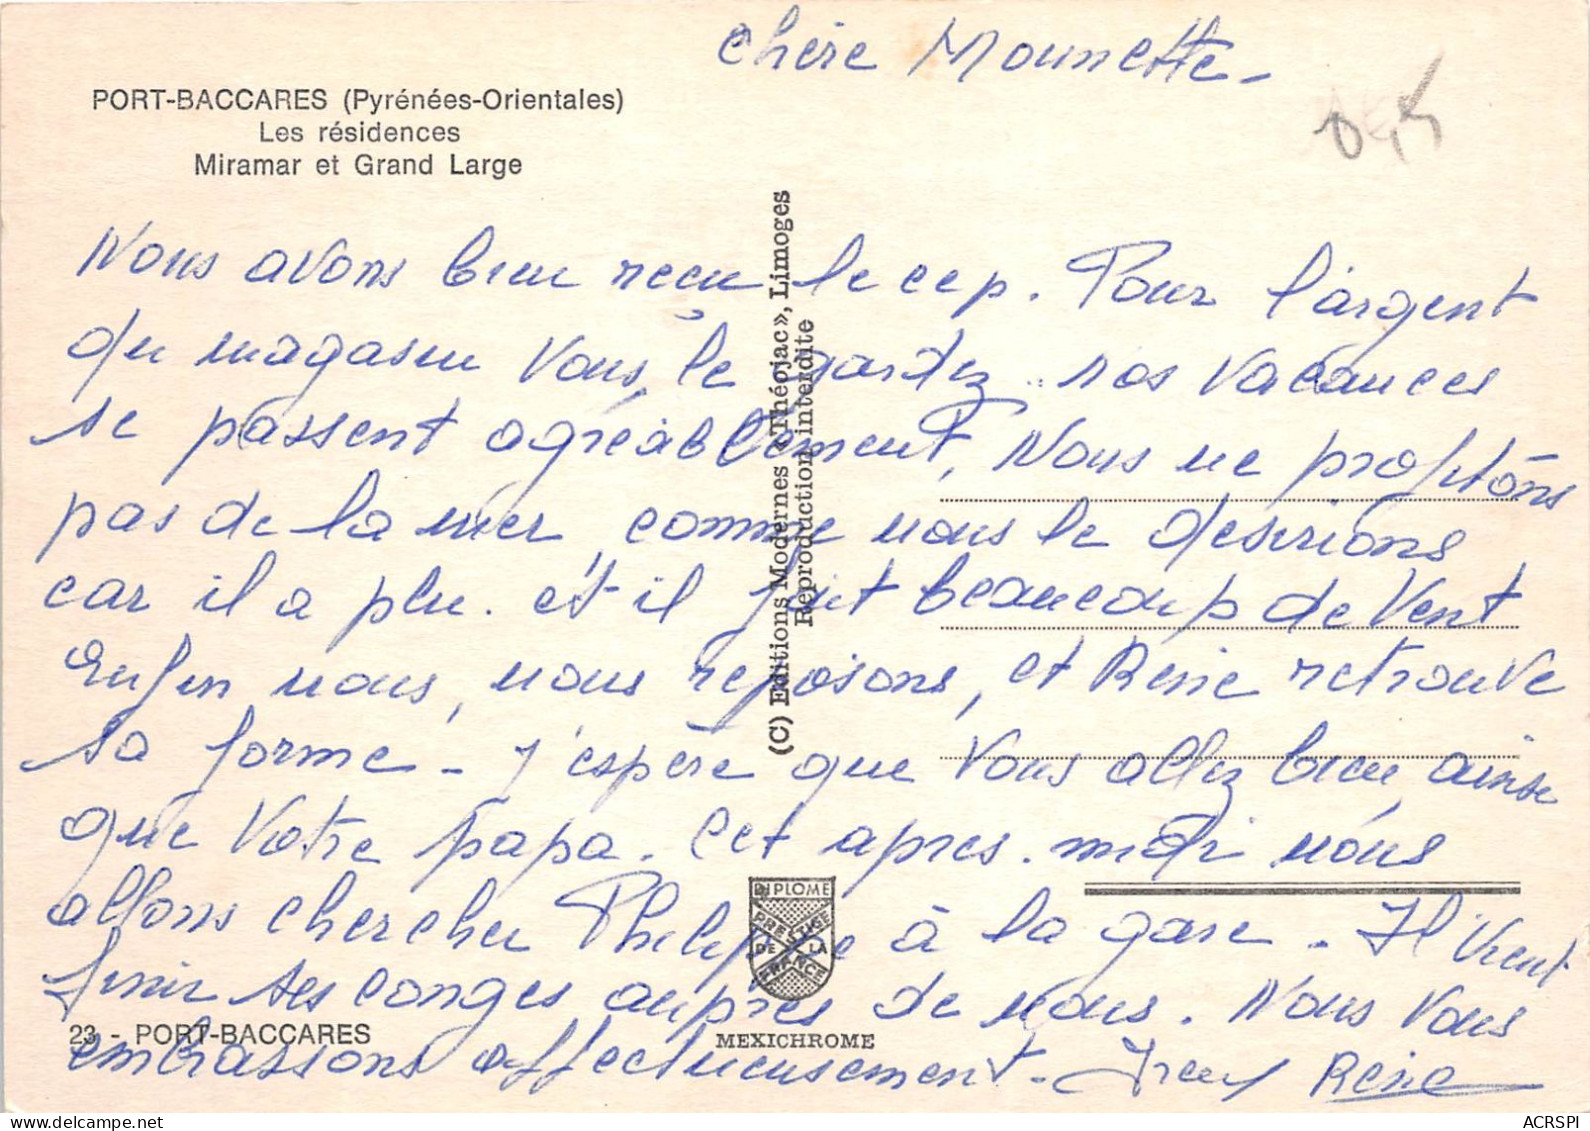 Chère Mounette -
PORT-BACCARES (Pyrénées-Orientales)
Les résidences
Miramar et Grand Large
Nous avons bien reçu le ccp. Pour l'argent
du magasin vous le gardez. nos vacances
se passent agréablement, Nous ne profitons
pas de la mer, comme nous le desirions
car il a plu. et il fait beaucoup de vent
Enfin nous, nous reposons, et René retrouve
sa forme - J'espère que vous allez bien ainsi
que votre papa. Cet apres. midi nous
allons chercher Philippe à la gare - Il vient
finir ses congés auprès de nous. Nous vous
embrassons affectueusement - René
(C) Editions Modernes «Théojac», Limoges
Reproduction interdite
DIPLOME
PRESTIGE
DE LA
FRANCE
23 - PORT-BACCARES
MEXICHROME
ACRSPI